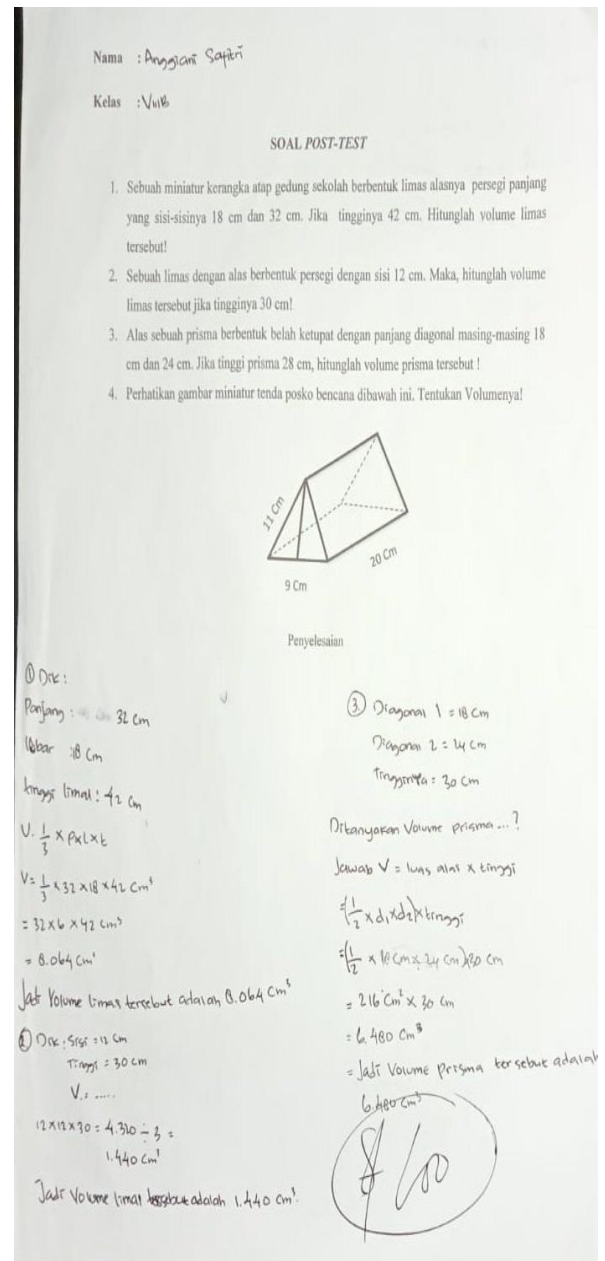 Nama : Anggiani Safitri
Kelas : VIIIB
SOAL POST-TEST
1. Sebuah miniatur kerangka atap gedung sekolah berbentuk limas alasnya persegi panjang
yang sisi-sisinya 18 cm dan 32 cm. Jika tingginya 42 cm. Hitunglah volume limas
tersebut!
2. Sebuah limas dengan alas berbentuk persegi dengan sisi 12 cm. Maka, hitunglah volume
limas tersebut jika tingginya 30 cm!
3. Alas sebuah prisma berbentuk belah ketupat dengan panjang diagonal masing-masing 18
cm dan 24 cm. Jika tinggi prisma 28 cm, hitunglah volume prisma tersebut !
4. Perhatikan gambar miniatur tenda posko bencana dibawah ini. Tentukan Volumenya!
11 Cm
20 Cm
9 Cm
Penyelesaian
① Dik :
Panjang : 32 cm
lebar : 18 cm
tinggi limas : 42 cm
V. 1/3 x p x l x t
V = 1/3 x 32 x 18 x 42 cm³
= 32 x 6 x 42 cm³
= 8.064 cm³
Jadi Volume limas tersebut adalah 8.064 cm³
② Dik : Sisi = 12 cm
Tinggi = 30 cm
V. = .....
12 x 12 x 30 = 4.320 ÷ 3 =
1.440 cm³
Jadi Volume limas tersebut adalah 1.440 cm³.
③ Diagonal 1 = 18 cm
Diagonal 2 = 24 cm
Tingginya = 30 cm
Ditanyakan Volume prisma ... ?
Jawab V = luas alas x tinggi
= (1/2 x d₁ x d₂) x tinggi
= (1/2 x 18 cm x 24 cm) x 30 cm
= 216 cm² x 30 cm
= 6.480 cm³
= Jadi Volume prisma tersebut adalah
6.480 cm³